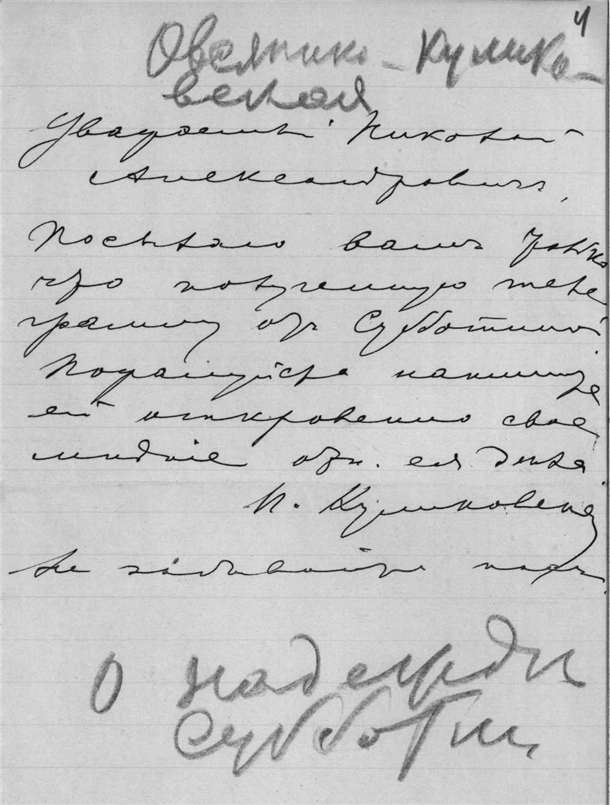 4
Овсянико-Кулико-
вская
Уважаемый Николай
Александровичъ,
Посылаю вамъ только
что полученную теле
грамму отъ Субботиной
Пожалуйста напишите
ей откровенно свое
мнѣніе отн. ея дѣла
Куликовская
Не забывайте насъ.
О Надежды
Субботин